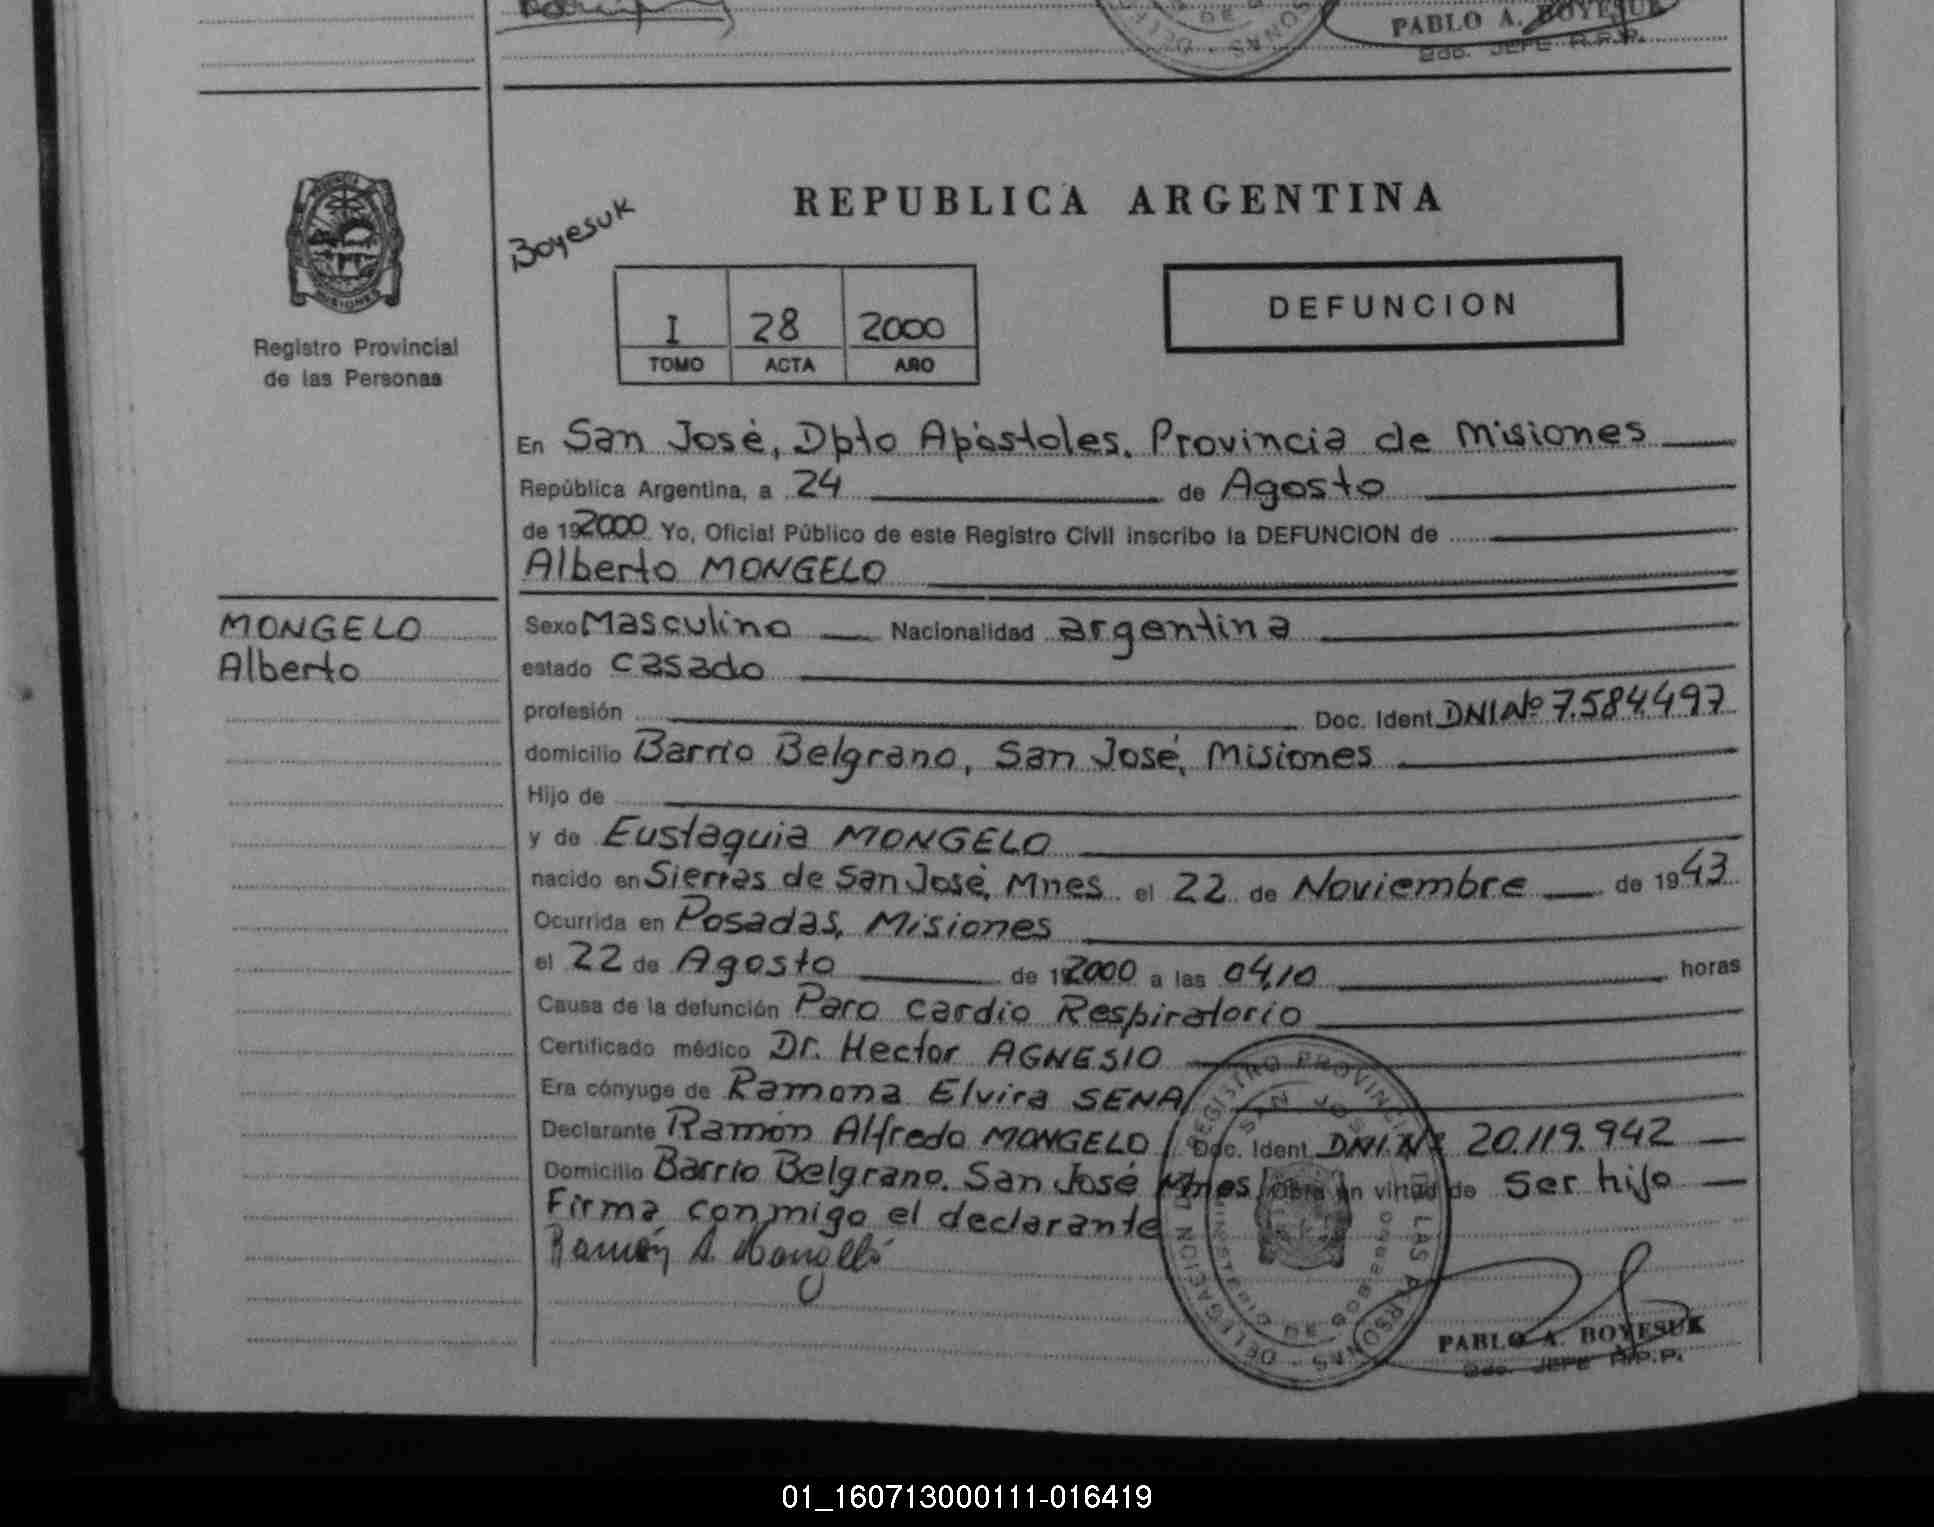 PABLO A. BOYESUK
Bdo. JEFE R.P.P.
REPUBLICA ARGENTINA
Boyesuk
DEFUNCION
I 28 2000
TOMO ACTA AÑO
Registro Provincial
de las Personas
En San José, Dpto Apóstoles. Provincia de Misiones
República Argentina, a 24 de Agosto
de 192000 Yo, Oficial Público de este Registro Civil inscribo la DEFUNCION de
Alberto MONGELO
MONGELO
Alberto
Sexo Masculino Nacionalidad argentina
estado casado
profesión Doc. Ident DNI Nº 7.584.497
domicilio Barrio Belgrano, San José, Misiones
Hijo de
y de Eustaquia MONGELO
nacido en Sierras de San José, Mnes el 22 de Noviembre de 1943
Ocurrida en Posadas, Misiones
el 22 de Agosto de 192000 a las 04,10 horas
Causa de la defunción Paro Cardio Respiratorio
Certificado médico Dr. Hector AGNESIO
Era cónyuge de Ramona Elvira SENA
Declarante Ramón Alfredo MONGELO Doc. Ident. DNI.Nº 20.119.942
Domicilio Barrio Belgrano. San José Mnes Obra en virtud de Ser hijo
Firma conmigo el declarante
Ramón A. Mongelo
PABLO A. BOYESUK
Bdo. JEFE R.P.P.
01_160713000111-016419